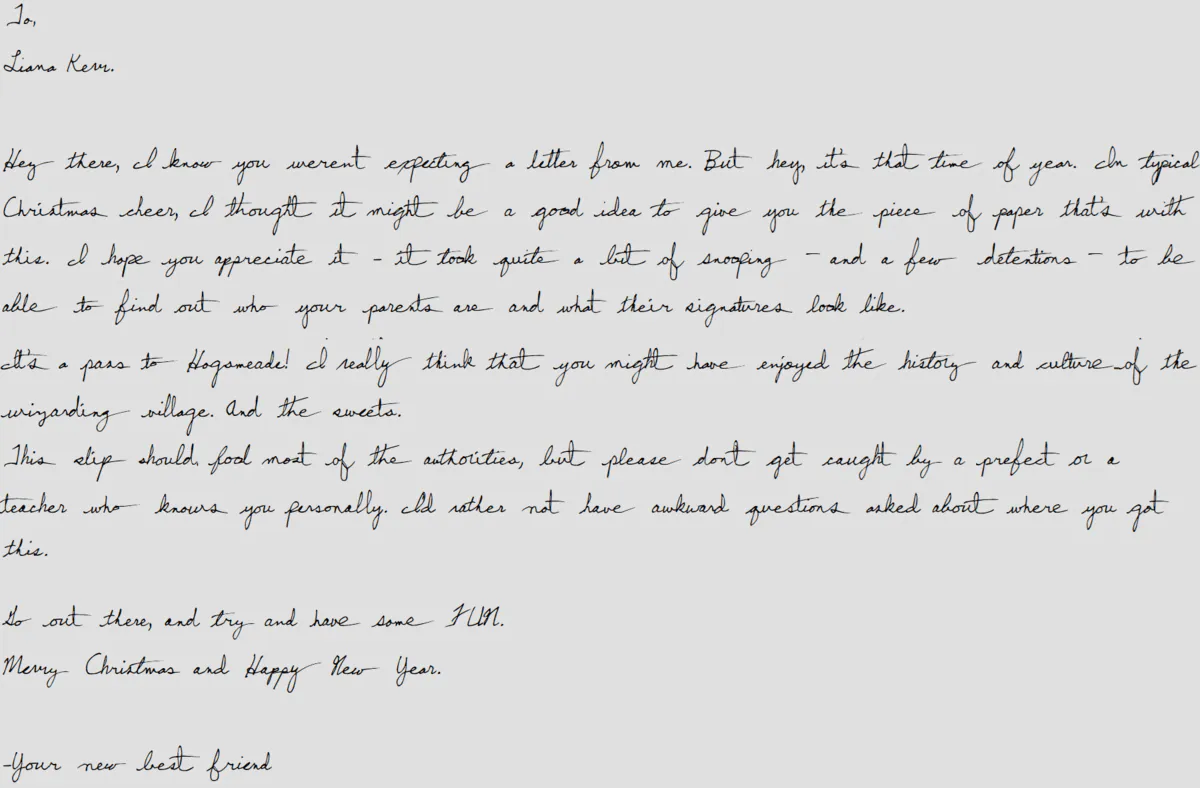 To,
Liana Kerr.
Hey there, I know you werent expecting a letter from me. But hey, it's that time of year. In typical
Christmas cheer, I thought it might be a good idea to give you the piece of paper that's with
this. I hope you appreciate it - it took quite a bit of snooping - and a few detentions - to be
able to find out who your parents are and what their signatures look like.
It's a pass to Hogsmeade! I really think that you might have enjoyed the history and culture of the
wizarding village. And the sweets.
This slip should fool most of the authorities, but please don't get caught by a prefect or a
teacher who knows you personally. I'd rather not have awkward questions asked about where you got
this.
Go out there, and try and have some FUN.
Merry Christmas and Happy New Year.
-Your new best friend